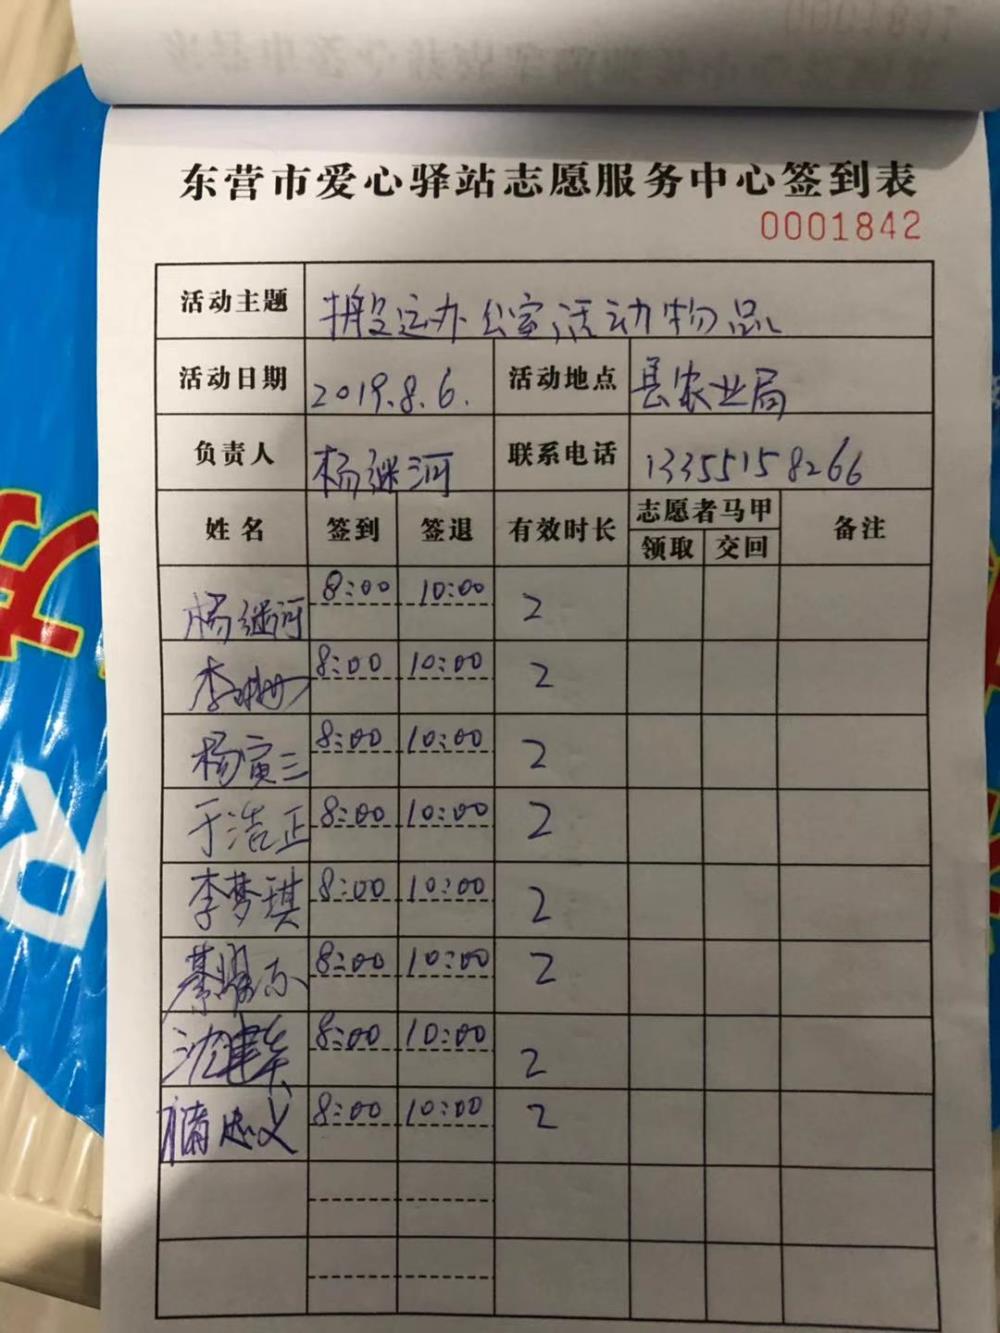 东营市爱心驿站志愿服务中心签到表
0001842
活动主题 搬运办公室活动物品
活动日期 2019.8.6. 活动地点 县农业局
负责人 杨继河 联系电话 13355158266
姓名 签到 签退 有效时长 志愿者马甲 备注
领取 交回
杨继河 8:00 10:00 2
李 8:00 10:00 2
杨寅三 8:00 10:00 2
于浩正 8:00 10:00 2
李梦琪 8:00 10:00 2
綦 8:00 10:00 2
沈建华 8:00 10:00 2
忠义 8:00 10:00 2